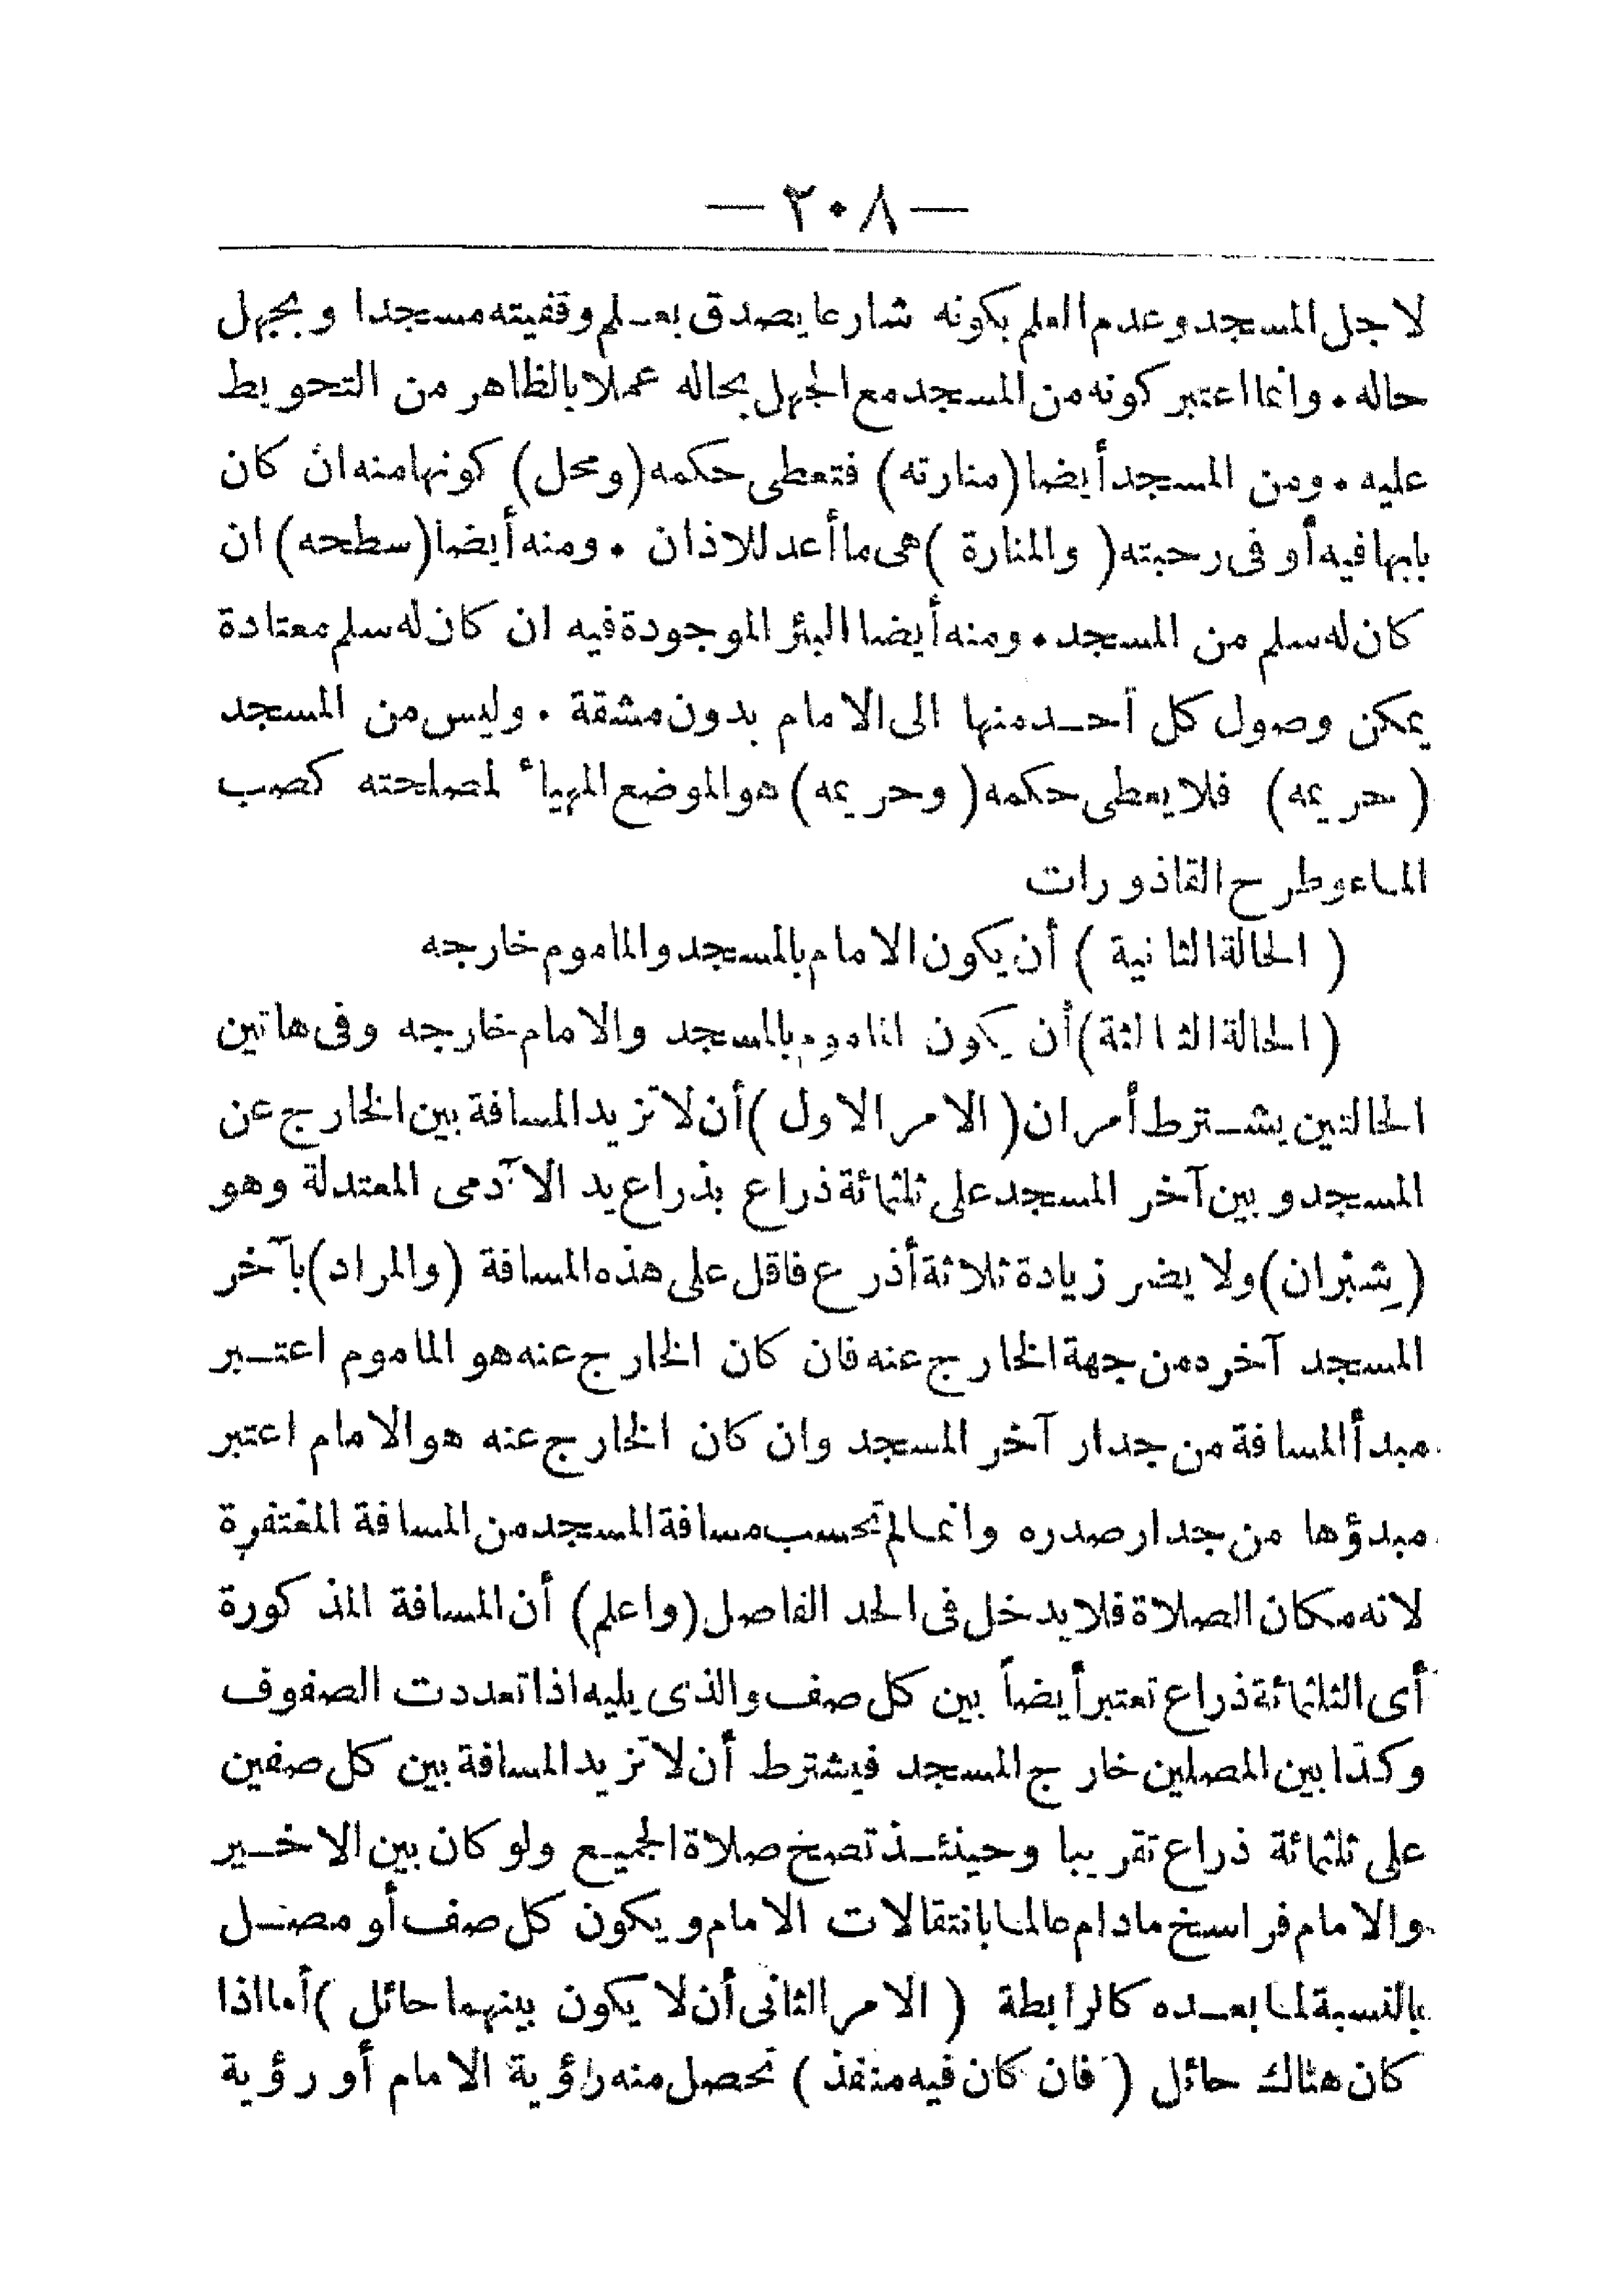 — ٢٠٨ —
لاجل المسجد وعدم العلم بكونه شارعا يصدق بعلم وقفيته مسجدا وبجهل
حاله . وانما اعتبر كونه من المسجد مع الجهل بحاله عملا بالظاهر من التحويط
عليه . ومن المسجد أيضا (منارته) فتعطى حكمه (ومحل) كونها منه ان كان
بابها فيه أو فى رحبته (والمنارة) هى ما أعد للاذان . ومنه أيضا (سطحه) ان
كان له سلم من المسجد . ومنه أيضا البئر الموجودة فيه ان كان له سلم معتادة
يمكن وصول كل أحد منها الى الامام بدون مشقة . وليس من المسجد
(حريمه) فلا يعطى حكمه (وحريمه) هو الموضع المهيأ لمصلحته كصب
الماء وطرح القاذورات
(الحالة الثانية) أن يكون الامام بالمسجد والماموم خارجه
(الحالة الثالثة) أن يكون الماموم بالمسجد والامام خارجه وفى هاتين
الحالتين يشترط أمران (الامر الاول) أن لا تزيد المسافة بين الخارج عن
المسجد وبين آخر المسجد على ثلثمائة ذراع بذراع يد الآدمى المعتدلة وهو
(شِبْران) ولا يضر زيادة ثلاثة أذرع فاقل على هذه المسافة (والمراد) بآخر
المسجد آخره من جهة الخارج عنه فان كان الخارج عنه هو الماموم اعتبر
مبدأ المسافة من جدار آخر المسجد وان كان الخارج عنه هو الامام اعتبر
مبدؤها من جدار صدره وانما لم تحسب مسافة المسجد من المسافة المغتفرة
لانه مكان الصلاة فلا يدخل فى الحد الفاصل (واعلم) أن المسافة المذكورة
أى الثلثمائة ذراع تعتبر أيضاً بين كل صف والذى يليه اذا تعددت الصفوف
وكذا بين المصلين خارج المسجد فيشترط أن لا تزيد المسافة بين كل صفين
على ثلثمائة ذراع تقريبا وحينئذ تصح صلاة الجميع ولو كان بين الاخير
والامام فراسخ مادام عالما بانتقالات الامام ويكون كل صف أو مصل
بالنسبة لما بعده كالرابطة (الامر الثانى أن لا يكون بينهما حائل) أما اذا
كان هناك حائل (فان كان فيه منفذ) تحصل منه رؤية الامام أو رؤية